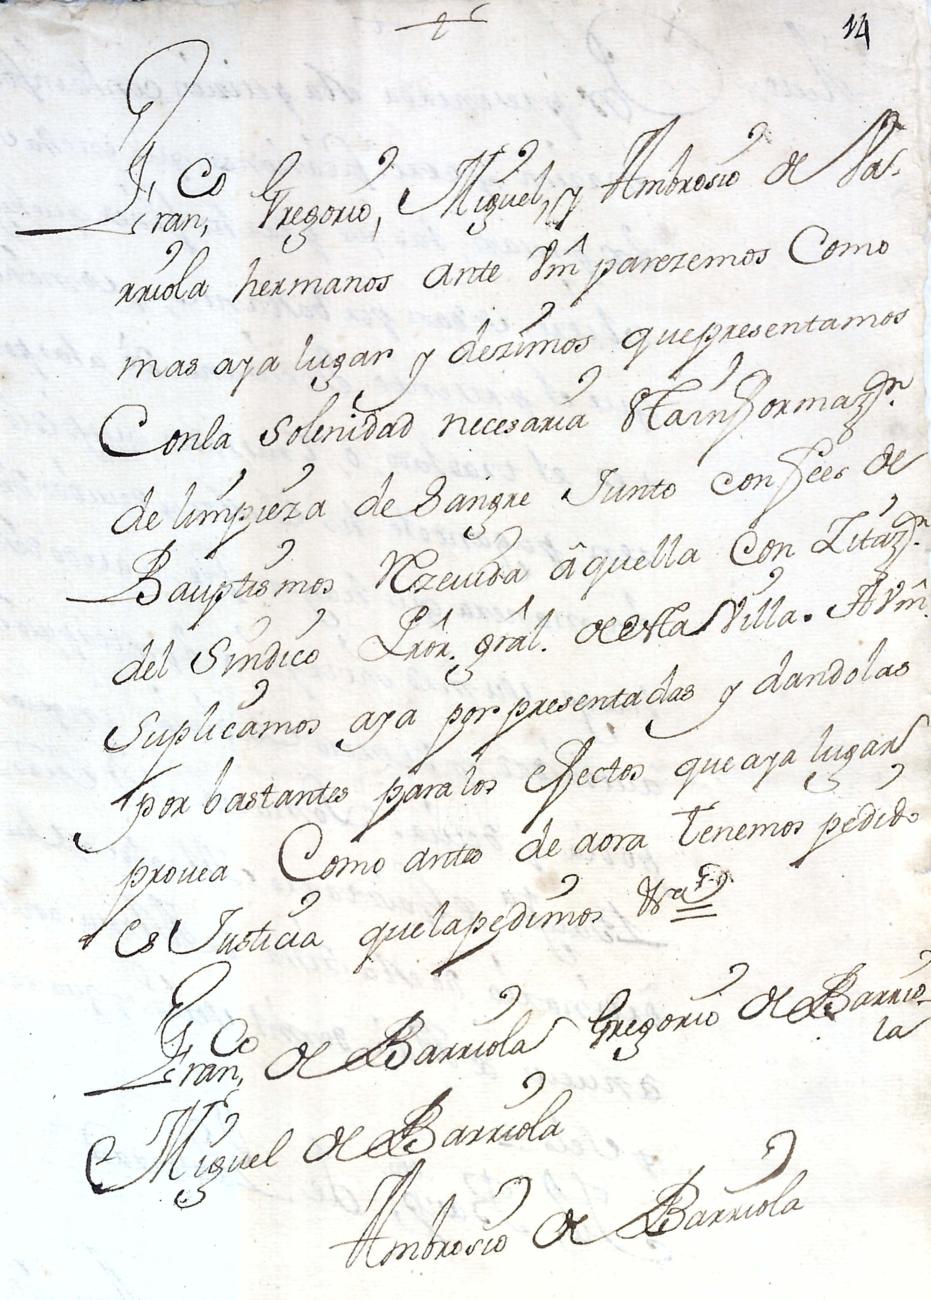 14
Fran.co Gregorio, Miguel, y Ambrosio de Bar-
rriola hermanos ante Vm̂ parezemos Como
mas aya lugar y dezimos que presentamos
Conla Solenidad necesaria esta informaz.n
de limpieza de Sangre Junto con fees de
Bauptismos Rezeuida âquella con Zitaz.n
del Sindico Pror. gral. de esta Villa. A Vm̂
Suplicamos aya por presentadas y dandolas
por bastantes para los efectos que aya lugar
prouea Como antes de aora tenemos pedido
es Justicia que la pedimos
Fran.co de Barriola Gregorio de Barrio-
la
Miguel de Barriola
Ambrosio de Barriola